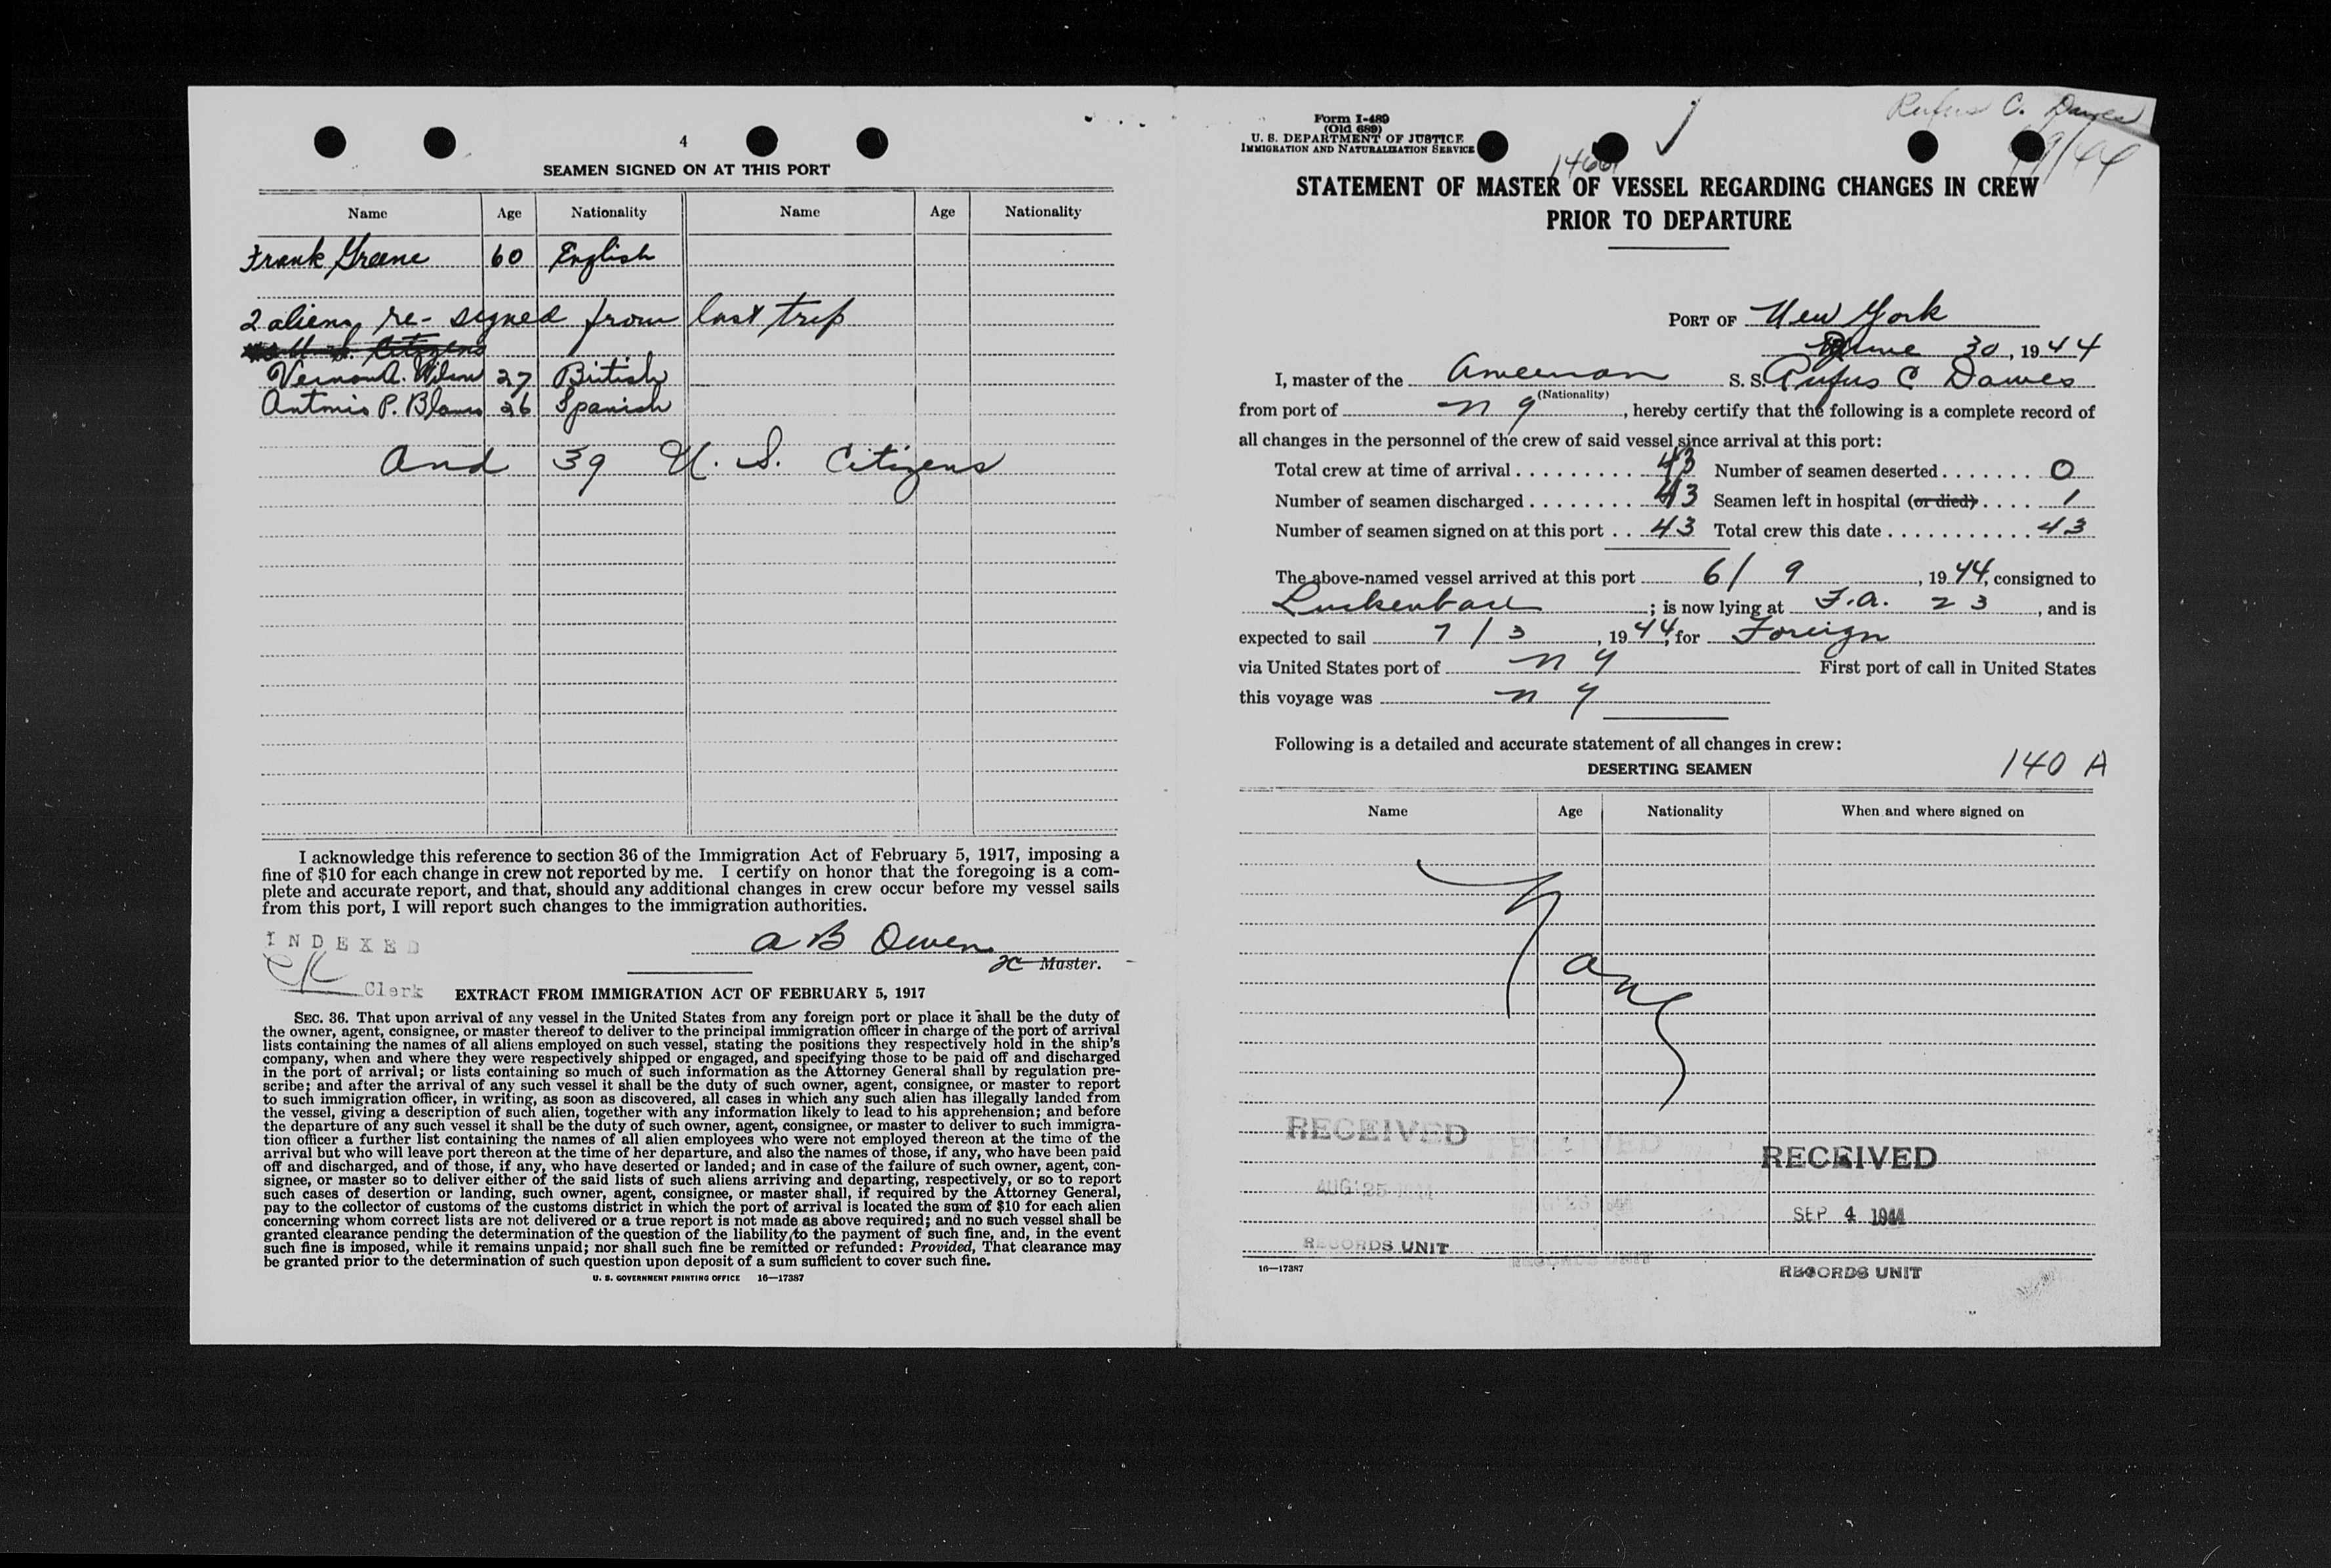 4
SEAMEN SIGNED ON AT THIS PORT
Name Age Nationality Name Age Nationality
Frank Greene 60 English
2 aliens re-signed from last trip
U.S. Citizens
Vernon A. 27 British
Antonio P. Blanco 26 Spanish
and 39 U.S. Citizens
I acknowledge this reference to section 36 of the Immigration Act of February 5, 1917, imposing a
fine of $10 for each change in crew not reported by me. I certify on honor that the foregoing is a com-
plete and accurate report, and that, should any additional changes in crew occur before my vessel sails
from this port, I will report such changes to the immigration authorities.
INDEXED
A B Owen
Master.
Clerk
EXTRACT FROM IMMIGRATION ACT OF FEBRUARY 5, 1917
SEC. 36. That upon arrival of any vessel in the United States from any foreign port or place it shall be the duty of
the owner, agent, consignee, or master thereof to deliver to the principal immigration officer in charge of the port of arrival
lists containing the names of all aliens employed on such vessel, stating the positions they respectively hold in the ship's
company, when and where they were respectively shipped or engaged, and specifying those to be paid off and discharged
in the port of arrival; or lists containing so much of such information as the Attorney General shall by regulation pre-
scribe; and after the arrival of any such vessel it shall be the duty of such owner, agent, consignee, or master to report
to such immigration officer, in writing, as soon as discovered, all cases in which any such alien has illegally landed from
the vessel, giving a description of such alien, together with any information likely to lead to his apprehension; and before
the departure of any such vessel it shall be the duty of such owner, agent, consignee, or master to deliver to such immigra-
tion officer a further list containing the names of all alien employees who were not employed thereon at the time of the
arrival but who will leave port thereon at the time of her departure, and also the names of those, if any, who have been paid
off and discharged, and of those, if any, who have deserted or landed; and in case of the failure of such owner, agent, con-
signee, or master so to deliver either of the said lists of such aliens arriving and departing, respectively, or so to report
such cases of desertion or landing, such owner, agent, consignee, or master shall, if required by the Attorney General,
pay to the collector of customs of the customs district in which the port of arrival is located the sum of $10 for each alien
concerning whom correct lists are not delivered or a true report is not made as above required; and no such vessel shall be
granted clearance pending the determination of the question of the liability to the payment of such fine, and, in the event
such fine is imposed, while it remains unpaid; nor shall such fine be remitted or refunded: Provided, That clearance may
be granted prior to the determination of such question upon deposit of a sum sufficient to cover such fine.
U. S. GOVERNMENT PRINTING OFFICE 16—17387
Rufus C. Dawes
Form I-489
(Old 689)
U. S. DEPARTMENT OF JUSTICE
IMMIGRATION AND NATURALIZATION SERVICE
STATEMENT OF MASTER OF VESSEL REGARDING CHANGES IN CREW
PRIOR TO DEPARTURE
PORT OF New York
June 30, 1944
I, master of the American S. S. Rufus C Dawes
(Nationality)
from port of N Y, hereby certify that the following is a complete record of
all changes in the personnel of the crew of said vessel since arrival at this port:
Total crew at time of arrival . . . . . . . . . . 43 Number of seamen deserted . . . . . . . 0
Number of seamen discharged . . . . . . . . . 43 Seamen left in hospital (or died) . . . . 1
Number of seamen signed on at this port . . 43 Total crew this date . . . . . . . . . . . . 43
The above-named vessel arrived at this port 6/9, 1944, consigned to
Luckenbach; is now lying at F.A. 23, and is
expected to sail 7/3, 1944, for Foreign
via United States port of N Y First port of call in United States
this voyage was N Y
Following is a detailed and accurate statement of all changes in crew:
DESERTING SEAMEN
140 A
Name Age Nationality When and where signed on
None
RECEIVED
AUG 25 1944
RECORDS UNIT
RECEIVED
SEP 4 1944
RECORDS UNIT
16—17387